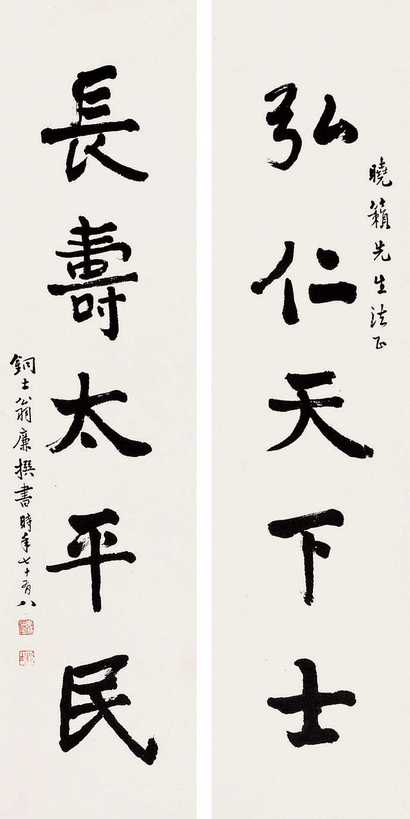 曉籟先生法正
弘仁天下士
長壽太平民
銅士翁廉撰書時年七十有八